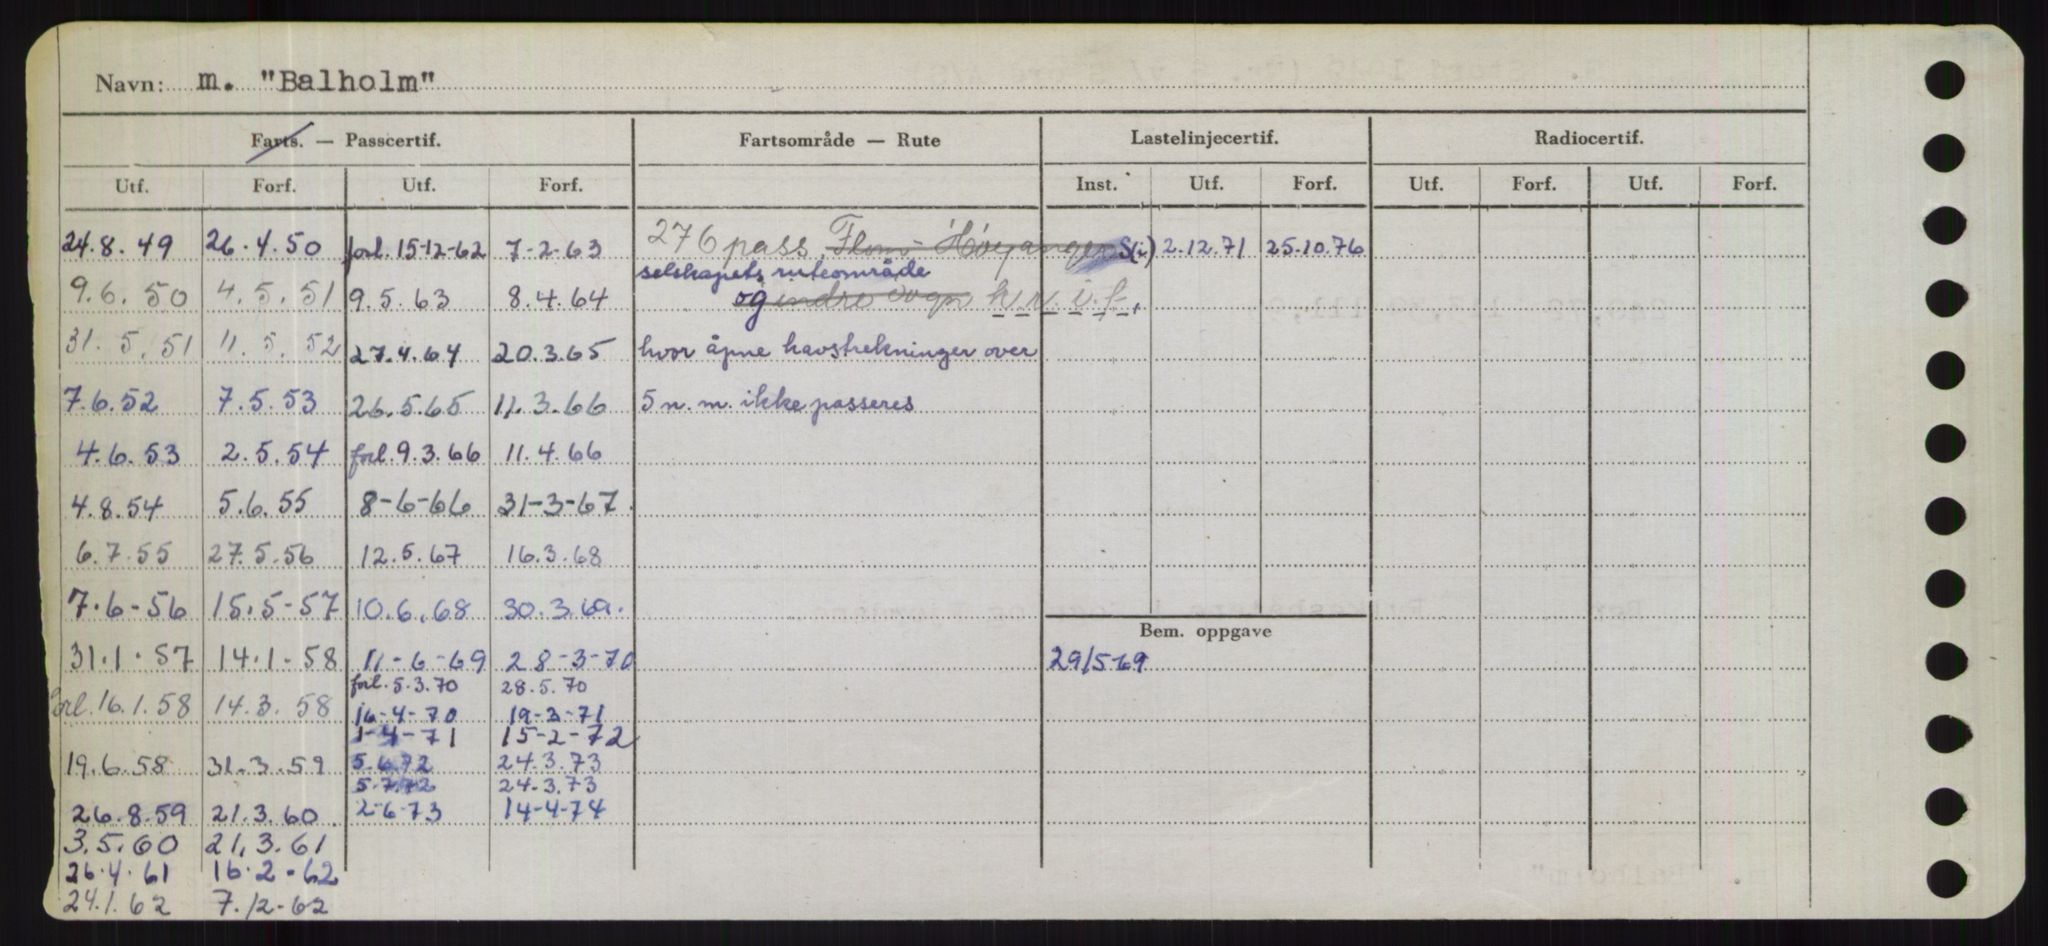 Navn: m. "Balholm"
Farts. — Passcertif. Fartsområde — Rute Lastelinjecertif. Radiocertif.
Utf. Forf. Utf. Forf. Inst. Utf. Forf. Utf. Forf. Utf. Forf.
24.8.49 26.4.50 forl. 15-12-62 7-2-63 276 pass. Høyanger S(i) 2.12.71 25.10.76
selskapets ruteområde
9.6.50 4.5.51 9.5.63 8.4.64 og indre Sogn
31.5.51 11.5.52 27.4.64 20.3.65 hvor åpne havstrekninger over
7.6.52 7.5.53 26.5.65 11.3.66 5 n.m. ikke passeres
4.6.53 2.5.54 forl. 9.3.66 11.4.66
4.8.54 5.6.55 8-6-66 31-3-67.
6.7.55 27.5.56 12.5.67 16.3.68
7.6-56 15.5-57 10.6.68 30.3.69.
Bem. oppgave
31.1.57 14.1-58 11-6-69 28-3-70 29/5-69
forl. 5.3.70 28.5.70
forl. 16.1.58 14.3.58 16-4-70 19-3-71
1-4-71 15-2-72
19.6.58 31.3.59 5.6.72 24.3.73
5.7.72 24.3.73
26.8.59 21.3.60 2-6-73 14-4-74
3.5.60 21.3.61
26.4.61 16.2.62
24.1.62 7.12-62